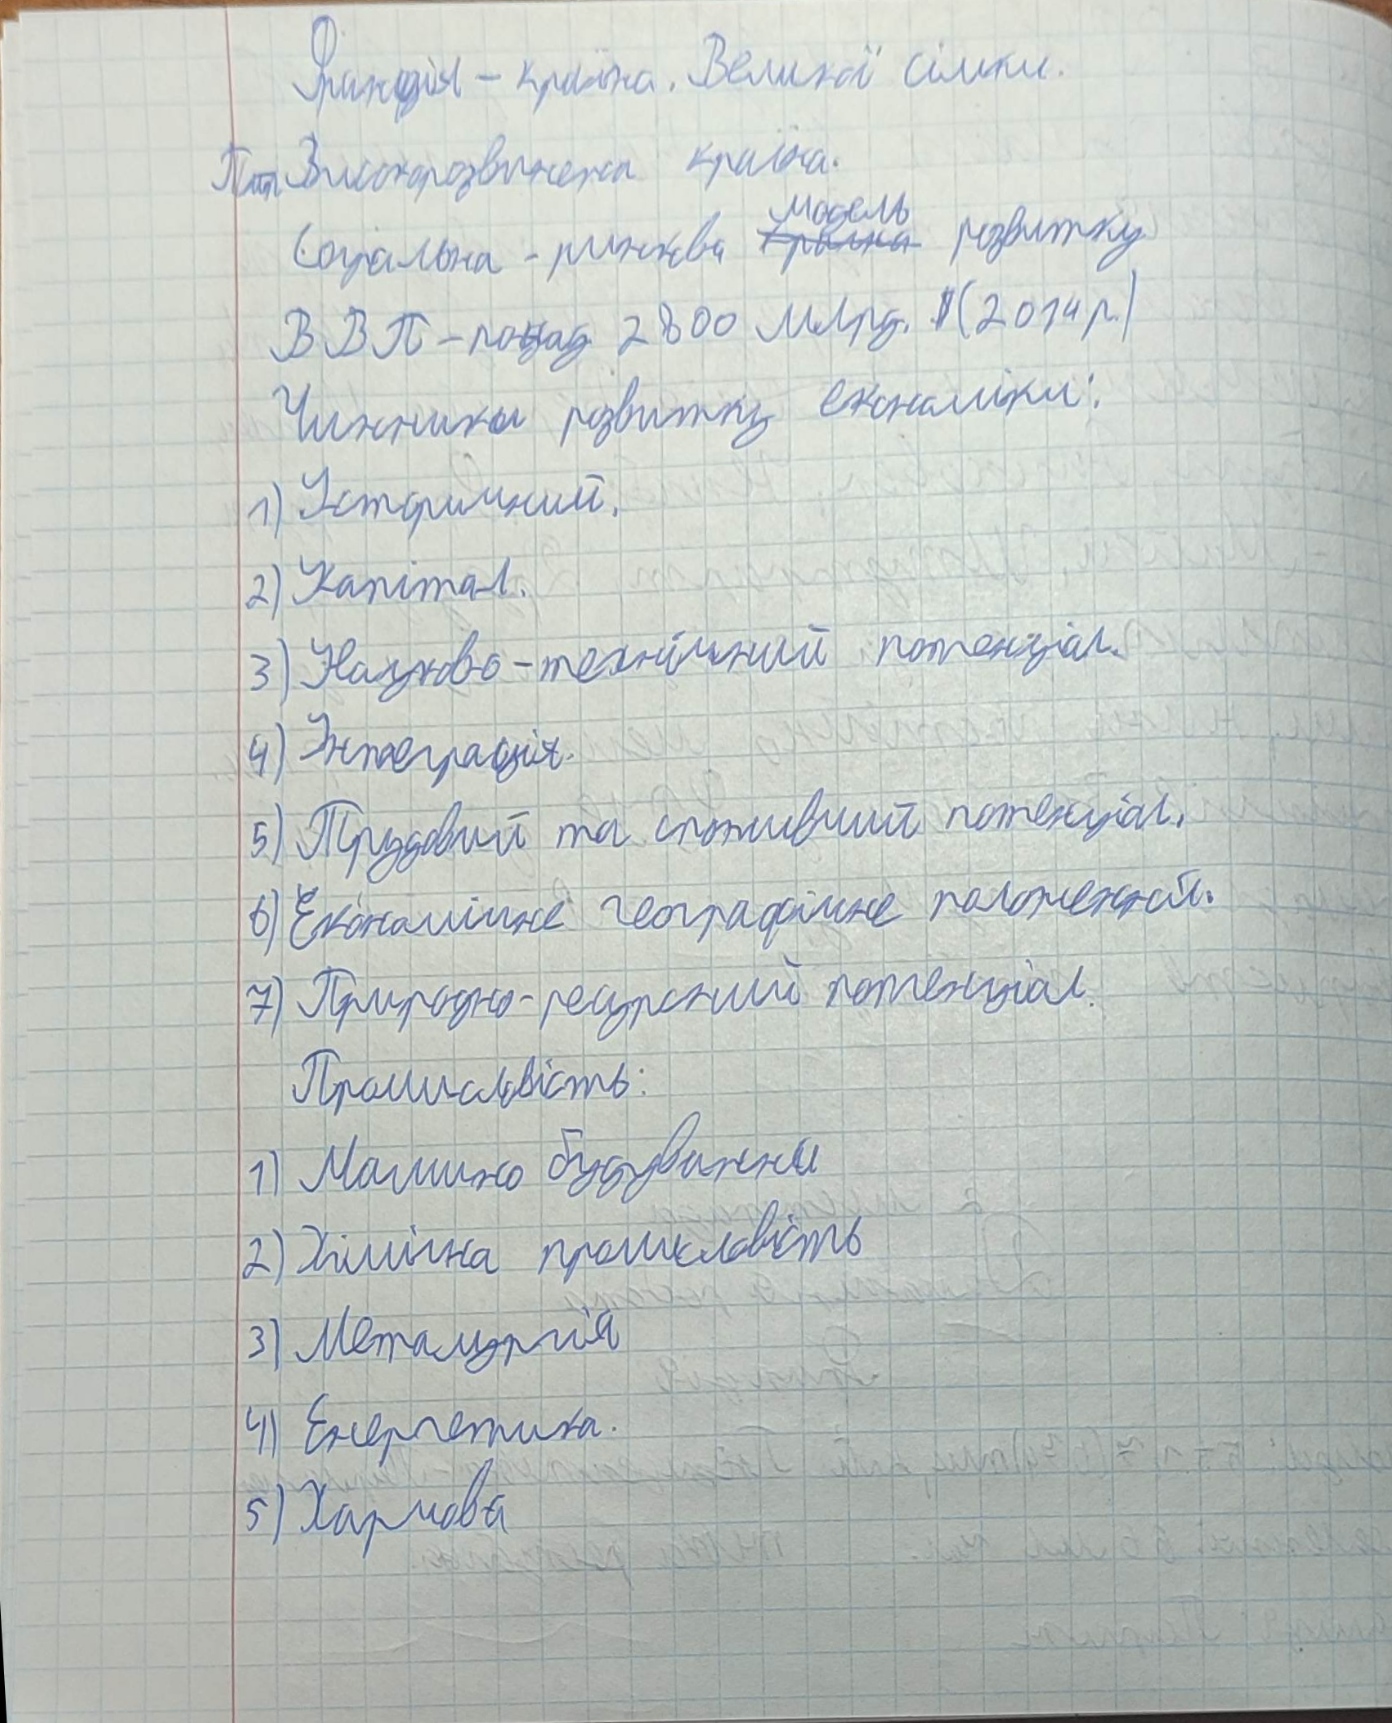 Франція – країна. Великої сімки.
Високорозвинена країна.
Соціальна - ринкова модель розвитку
ВВП – понад 2800 млрд. $ (2014 р.)
Чинники розвитку економіки:
1) Історичний.
2) Капітал.
3) Науково-технічний потенціал.
4) Інтеграція.
5) Трудовий та споживчий потенціал.
6) Економічне географічне положення.
7) Природно-ресурсний потенціал.
Промисловість:
1) Машино будування
2) Хімічна промисловість
3) Металургія
4) Енергетика.
5) Харчова